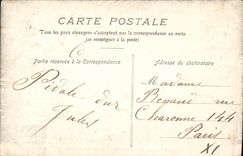 CARTE POSTALE
Tous les pays étrangers n'acceptent pas la correspondance au recto
(se renseigner à la poste)
Partie réservée à la Correspondance
Adresse du destinataire
Madame
rue
Charonne 144
Paris
XI
Jules